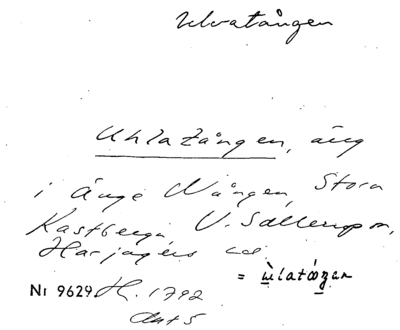 Ulvatången
Uhlatången, äng
i Änge Wången, Stora
Kastberga, V. Sallerups sn,
Harjagers hd.
= ùlatɷŋan
Nı 9629. H. 1792
Akt 5